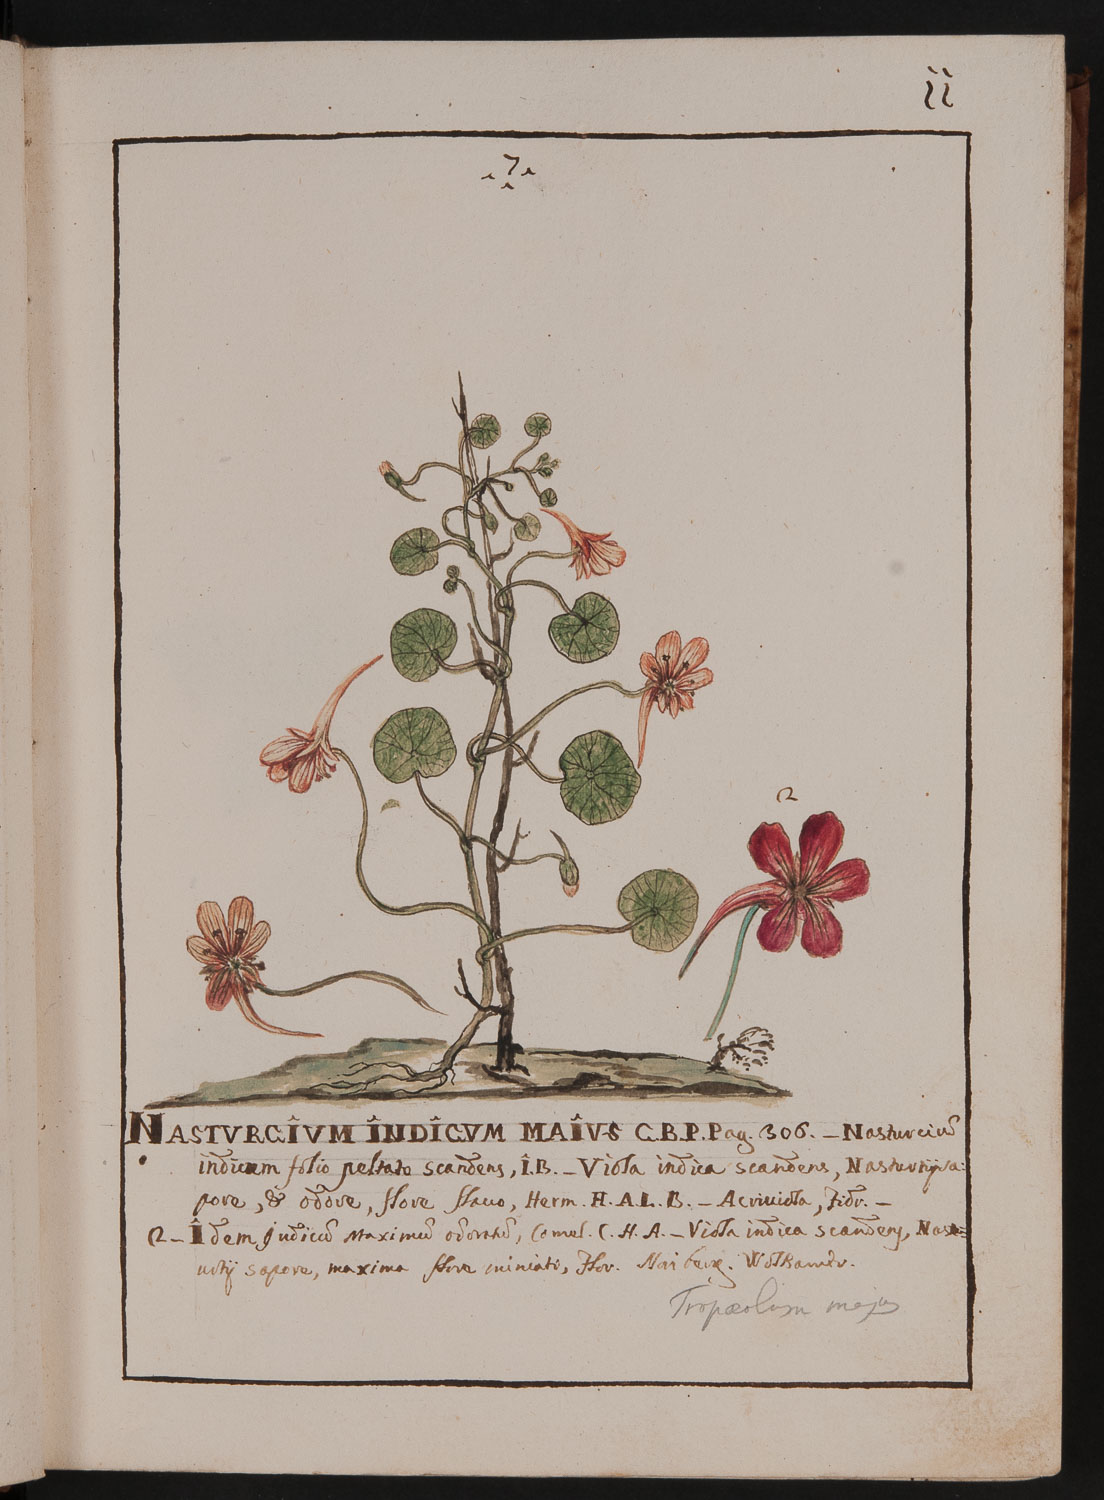 11
7
2
NASTVRCIVM INDICVM MAIVS C.B.P. Pag. 306. – Nasturciū
indicum folio peltato scandens, I.B. – Viola indica scandens, Nasturtij sa:
pore, & odore, flore flauo, Herm. H. A. L. B. – Acriuiola,
2 – Idem Indicū Maximū odoratū, Comel. C. H. A. – Viola indica scandens, Nast=
urtij sapore, maxima flore miniato, Flor. Norberg. Wolkamer.
Tropæolum majus